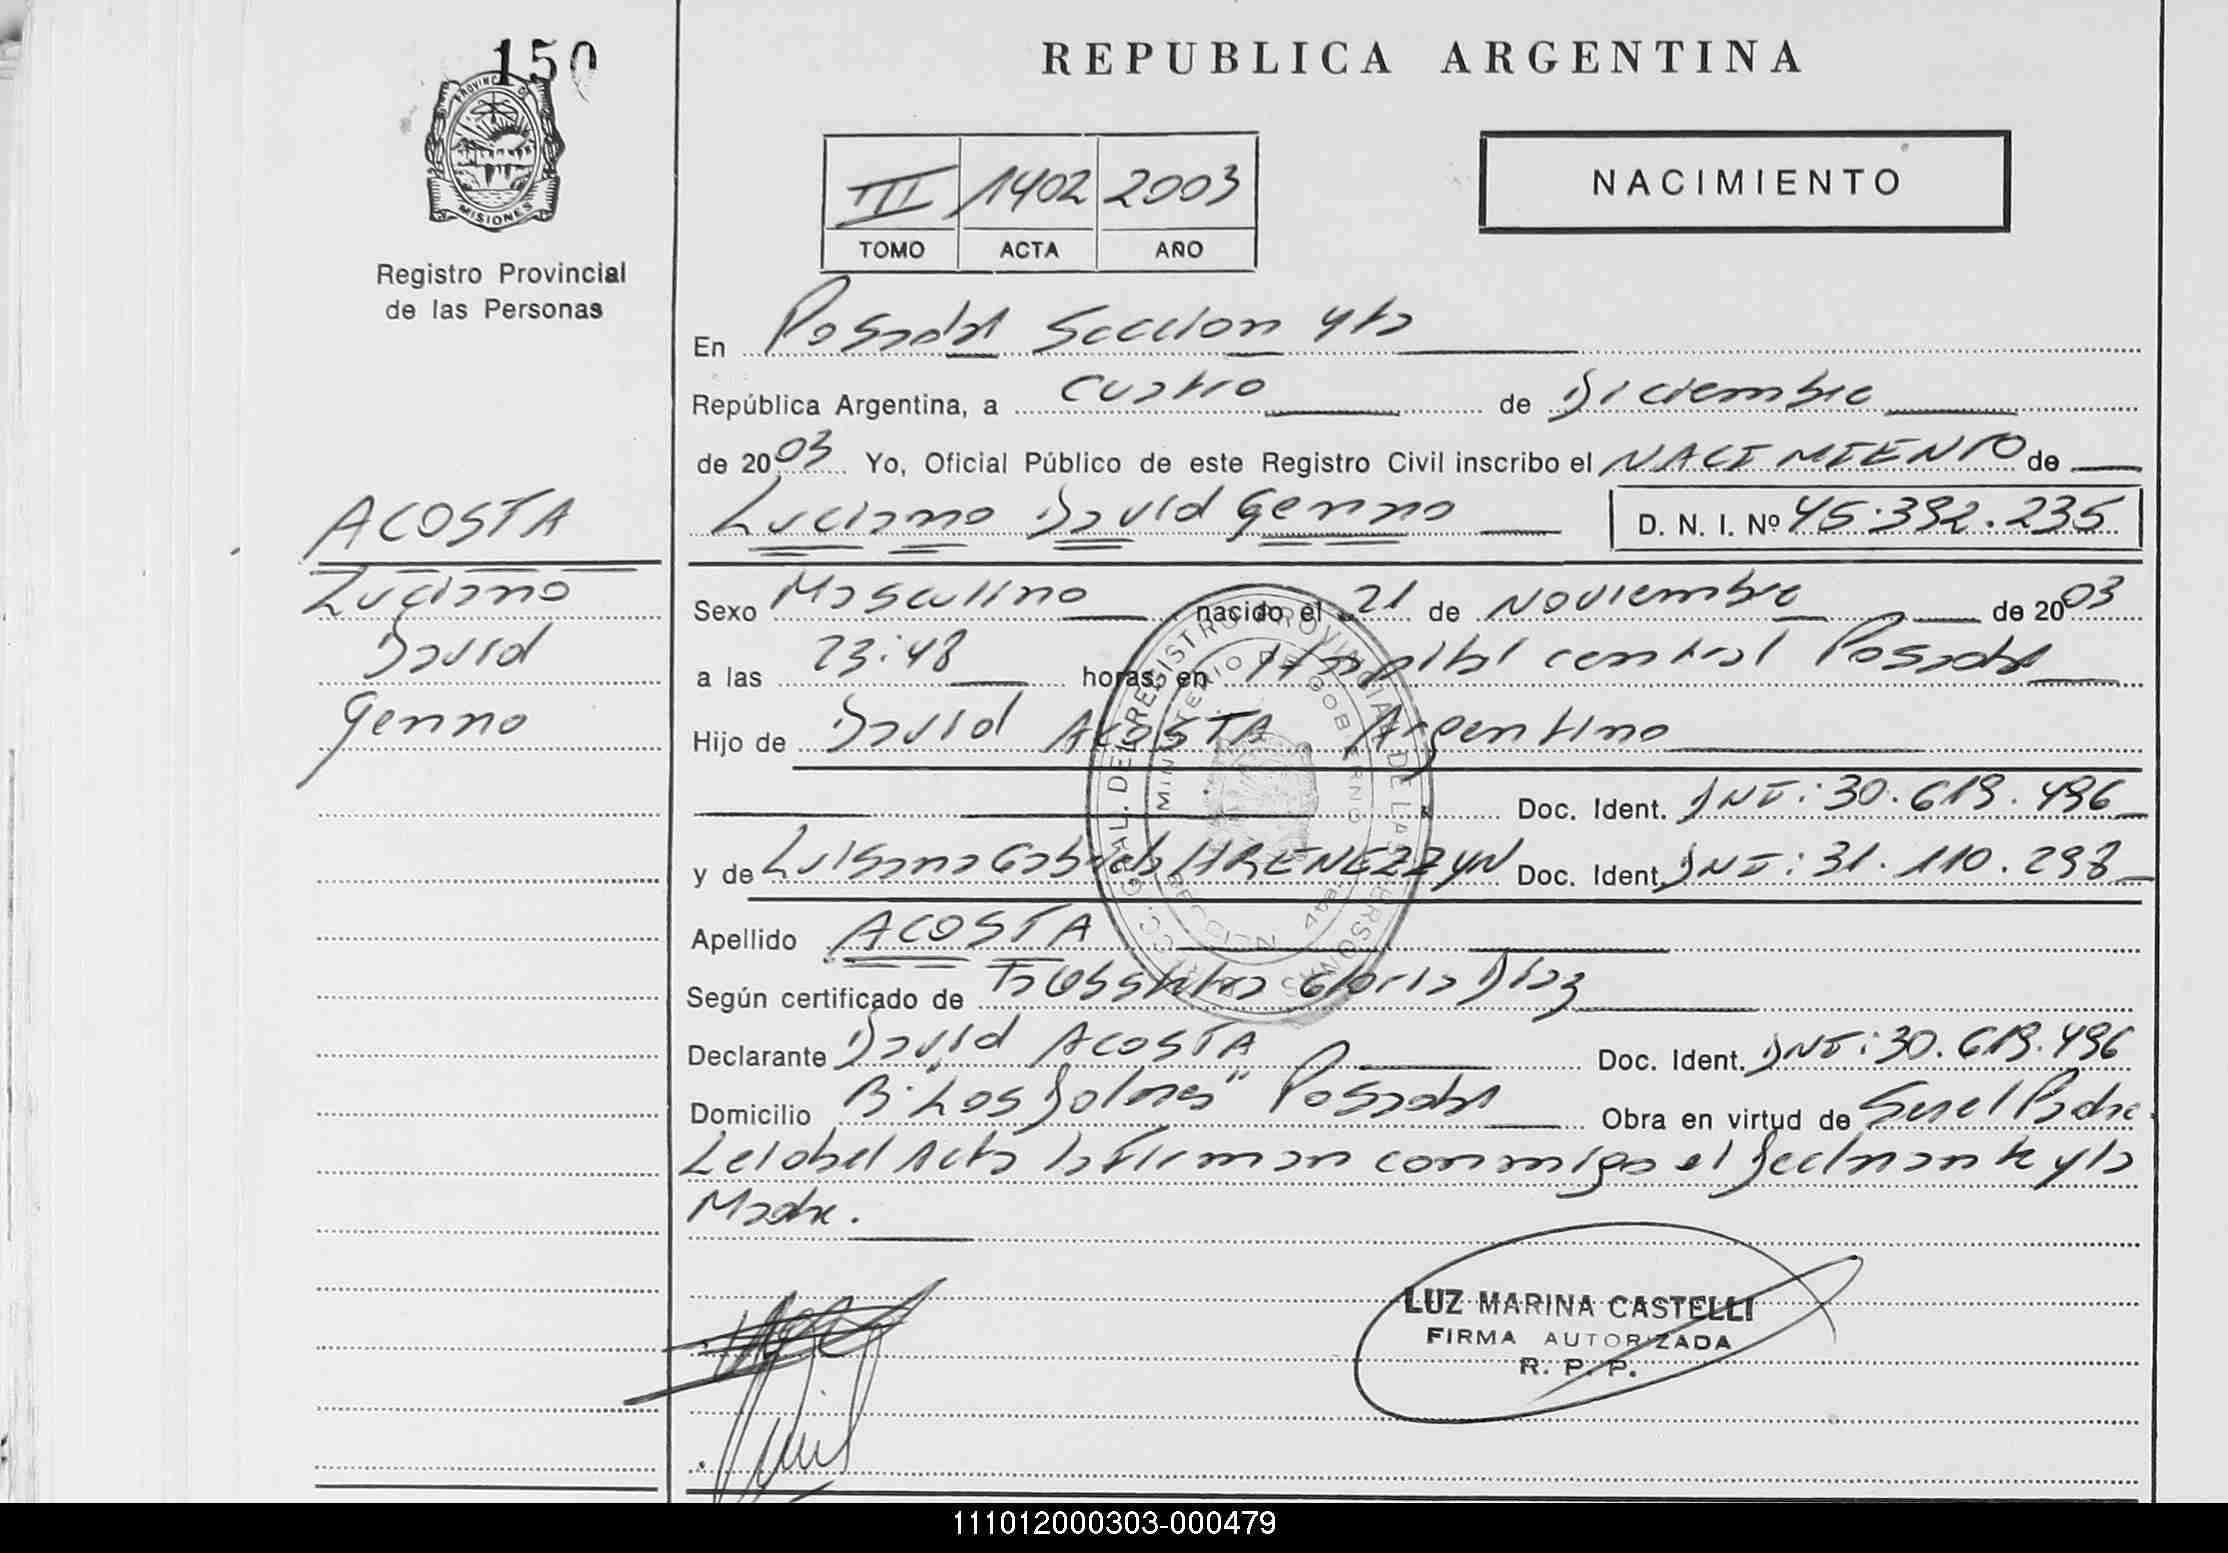 150
PROVINCIA DE
MISIONES
Registro Provincial
de las Personas
REPUBLICA ARGENTINA
III 1402 2003
TOMO ACTA AÑO
NACIMIENTO
En Posadas Seccion 4ta
República Argentina, a cuatro de Diciembre
de 2003 Yo, Oficial Público de este Registro Civil inscribo el NACIMIENTO de
Luciano David Genno D. N. I. Nº 45.392.235
ACOSTA
Luciano
David
Genno
Sexo Masculino nacido el 21 de Noviembre de 2003
a las 23:48 horas, en Hospital central Posadas
Hijo de David ACOSTA Argentino
Doc. Ident. DNI: 30.619.496
y de Doc. Ident. DNI: 31.110.298
Apellido ACOSTA
Según certificado de Obstetra Gloria Diaz
Declarante David ACOSTA Doc. Ident. DNI: 30.619.496
Domicilio Posadas Obra en virtud de Ser el Padre
Leida el Acta la Firman conmigo el Declarante y la
Madre.
LUZ MARINA CASTELLI
FIRMA AUTORIZADA
R. P. P.
111012000303-000479